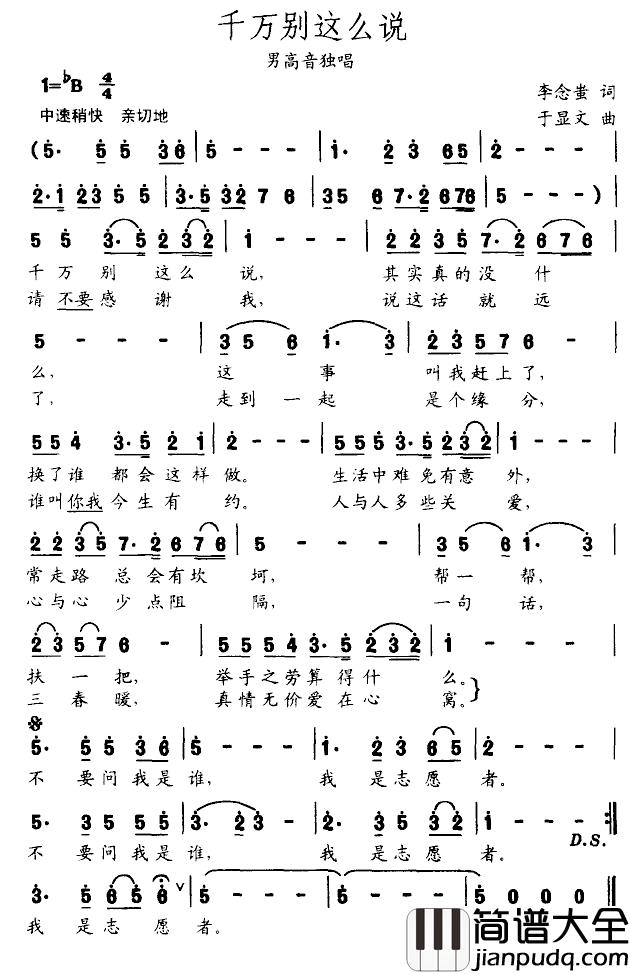 千万别这么说
男高音独唱
1=♭B 4/4
李念蚩 词
中速稍快 亲切地
于显文 曲
(5· 5 5 36 | 5 - - - | 1· 2 3 65 | 2 - - - |
2·1 23 5 5 | 3·5 232 7 6 | 35 6 7·2 676 | 5 - - - )
5 5 3·5 232 | 1 - - - | 22 35 7·2 676 |
千万别 这么 说, 其实真的没什
请不要感 谢 我, 说这话 就 远
5 - - - | 35 6 1· 3 | 23 57 6 - |
么, 这 事 叫我赶上了,
了, 走到 一起 是个缘分,
55 4 3·5 2 1 | 2 - - - | 555 3·5 232 | 1 - - - |
换了谁 都会这样做。 生活中难免有意 外,
谁叫你我今生有 约。 人与人多些关 爱,
22 35 7·2 676 | 5 - - - | 35 6 1· 3 |
常走路 总会有坎 坷, 帮一 帮,
心与心 少点阻 隔, 一句 话,
23 57 6 - | 5554 3·5 232 | 1 - - - |
扶 一 把, 举手之劳算得什 么。
三 春 暖, 真情无价爱在心 窝。
5· 5 5 36 | 5 - - - | 1· 2 3 65 | 2 - - - |
不 要问我是谁, 我 是志愿 者。
5· 35 55 | 3· 23 - | 2· 35 32 | 1 - - - :‖
D.S.
不 要问我是谁, 我 是志愿 者。
3· 2 3 5 6 ∨ | 5 - - - | 5 - - - | 5 0 0 0 ‖
我 是志 愿 者。
简谱大全
jianpudq.com